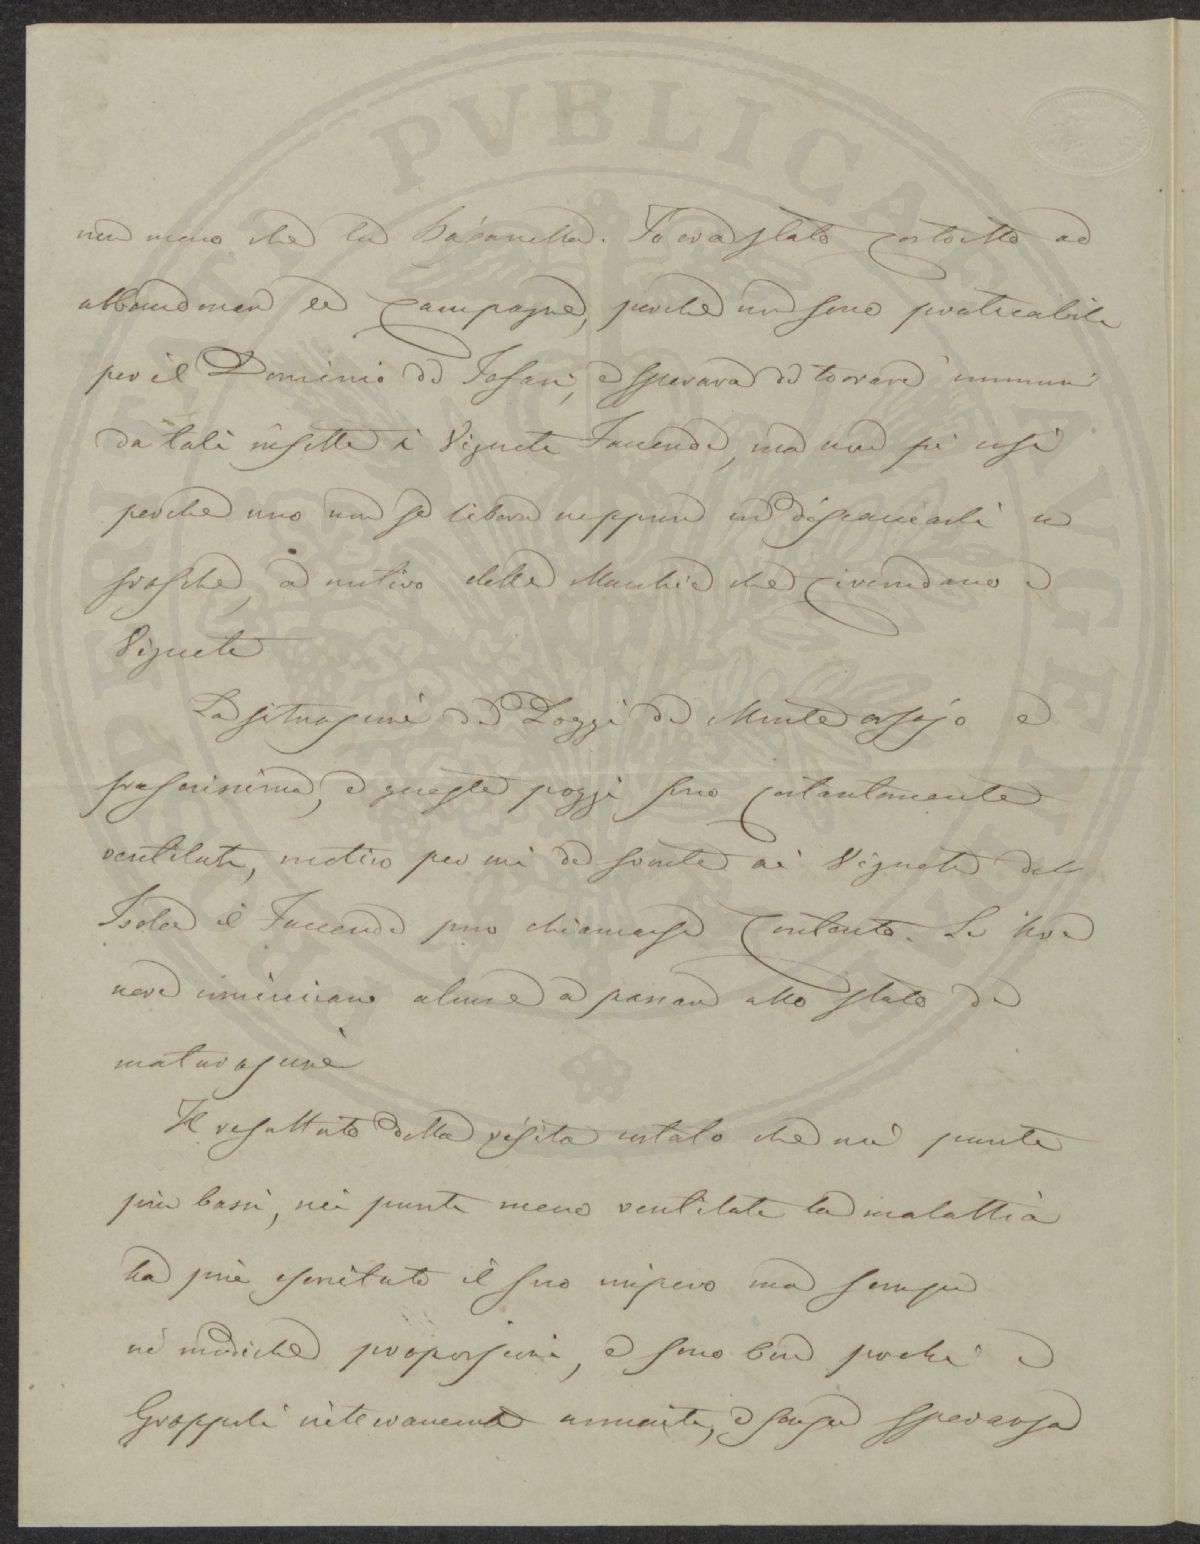 meno che la Io era stato costretto ad
abbandonare le Campagne, perché non sono praticabili
per il Dominio di Tafani, e sperava di trovare immuni
da tali insetti i Vigneti Faccenda, ma non fu così
perché uno non se libera neppure
frasche, a motivo delle Macchie che circondano i
Vigneti
La situazione dei Poggi di Monte e
freschissima, e questi poggi sono costantemente
ventilati, motivo per cui di fronte ai Vigneti dell
Isola il Faccenda può chiamarsi Contento. Le Uve
nere incominciano alcune a passare allo stato di
maturazione
Il resultato della visita è stato che nei punti
più bassi, nei punti meno ventilati la malattia
ha più esercitato il suo impero ma sempre
in modiche proporzioni, e sono ben pochi i
Grappoli interamente ammalati, e senza speranza